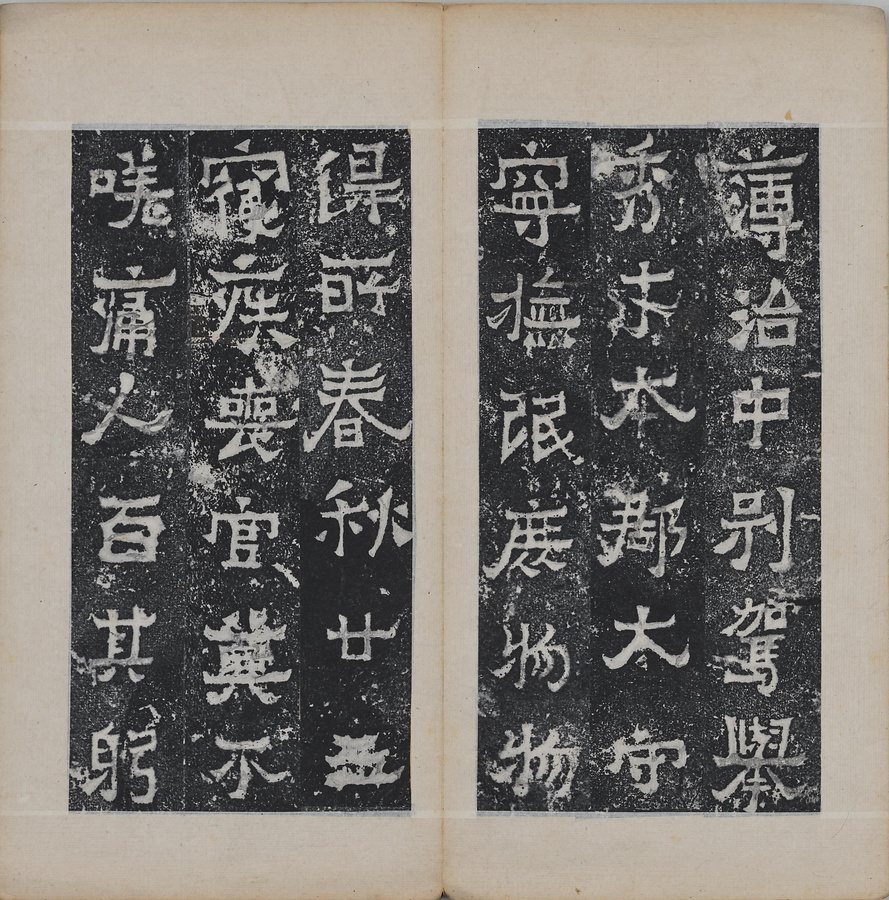 薄治中別駕舉
秀才本郡太守
寧撫氓庶物物
得所春秋廿五
寢疾喪官莫不
嗟痛人百其躬